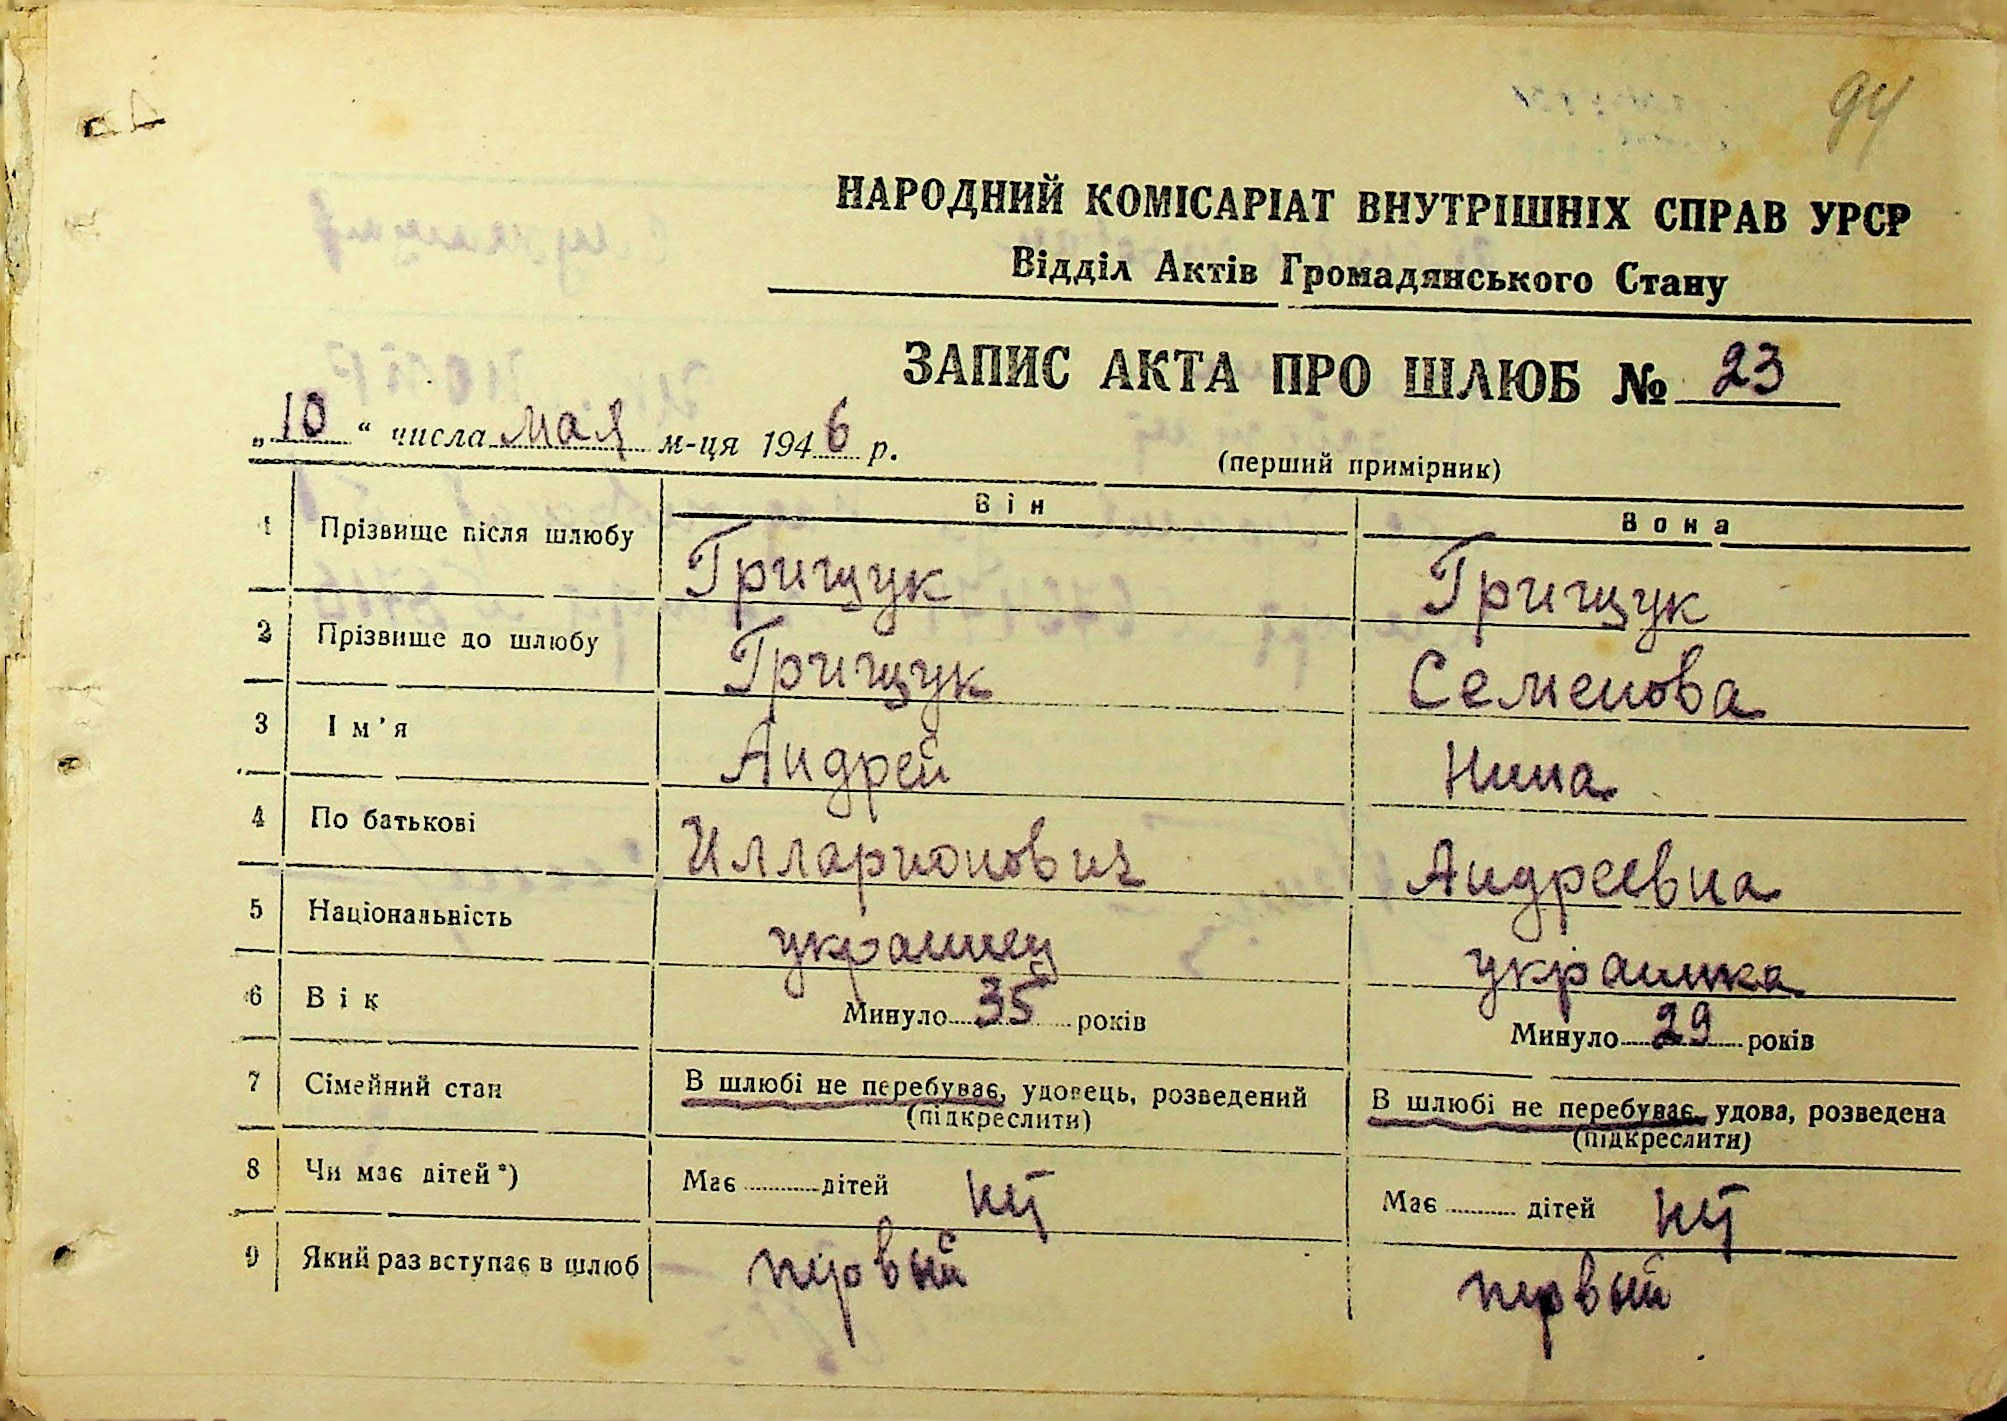 94
НАРОДНИЙ КОМІСАРІАТ ВНУТРІШНІХ СПРАВ УРСР
Відділ Актів Громадянського Стану
ЗАПИС АКТА ПРО ШЛЮБ № 23
„10“ числа мая м-ця 1946 р.
(перший примірник)
Він Вона
1 Прізвище після шлюбу Грищук Грищук
2 Прізвище до шлюбу Грищук Семенова
3 Ім’я Андрей Нина
4 По батькові Илларионович Андреевна
5 Національність украинец украинка
6 Вік Минуло 35 років Минуло 29 років
7 Сімейний стан В шлюбі не перебуває, удовець, розведений В шлюбі не перебуває, удова, розведена
(підкреслити) (підкреслити)
8 Чи має дітей*) Має ........ дітей нет Має ........ дітей нет
9 Який раз вступає в шлюб первый первый